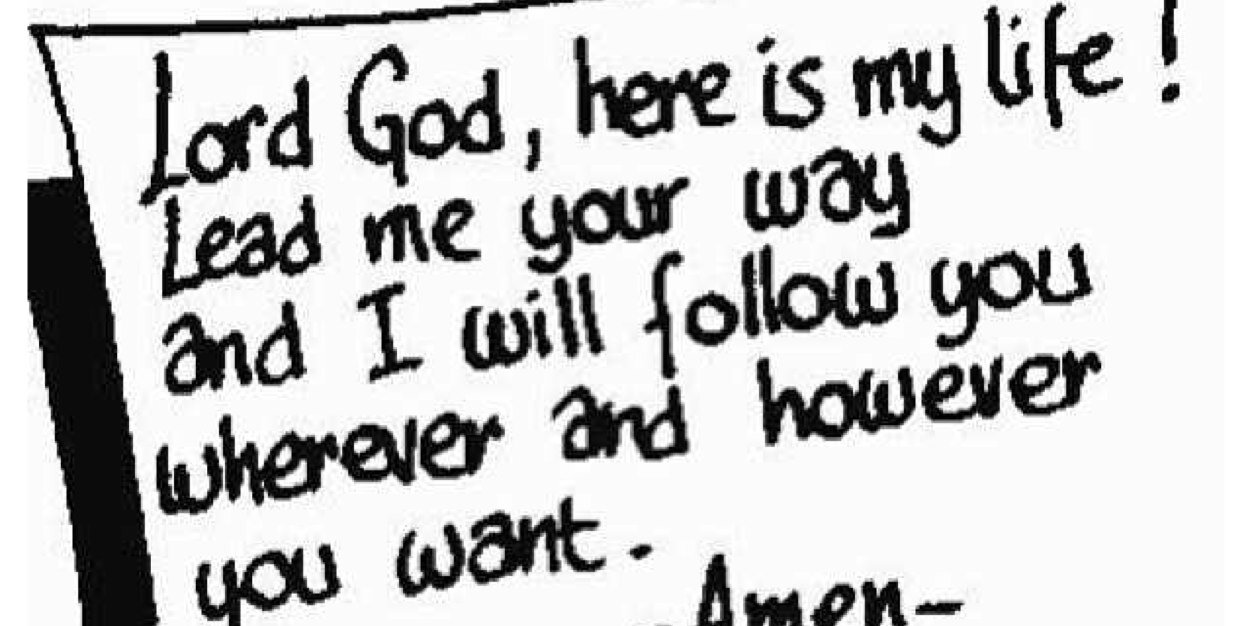 Lord God, here is my life!
Lead me your way
and I will follow you
wherever and however
you want.
-Amen-